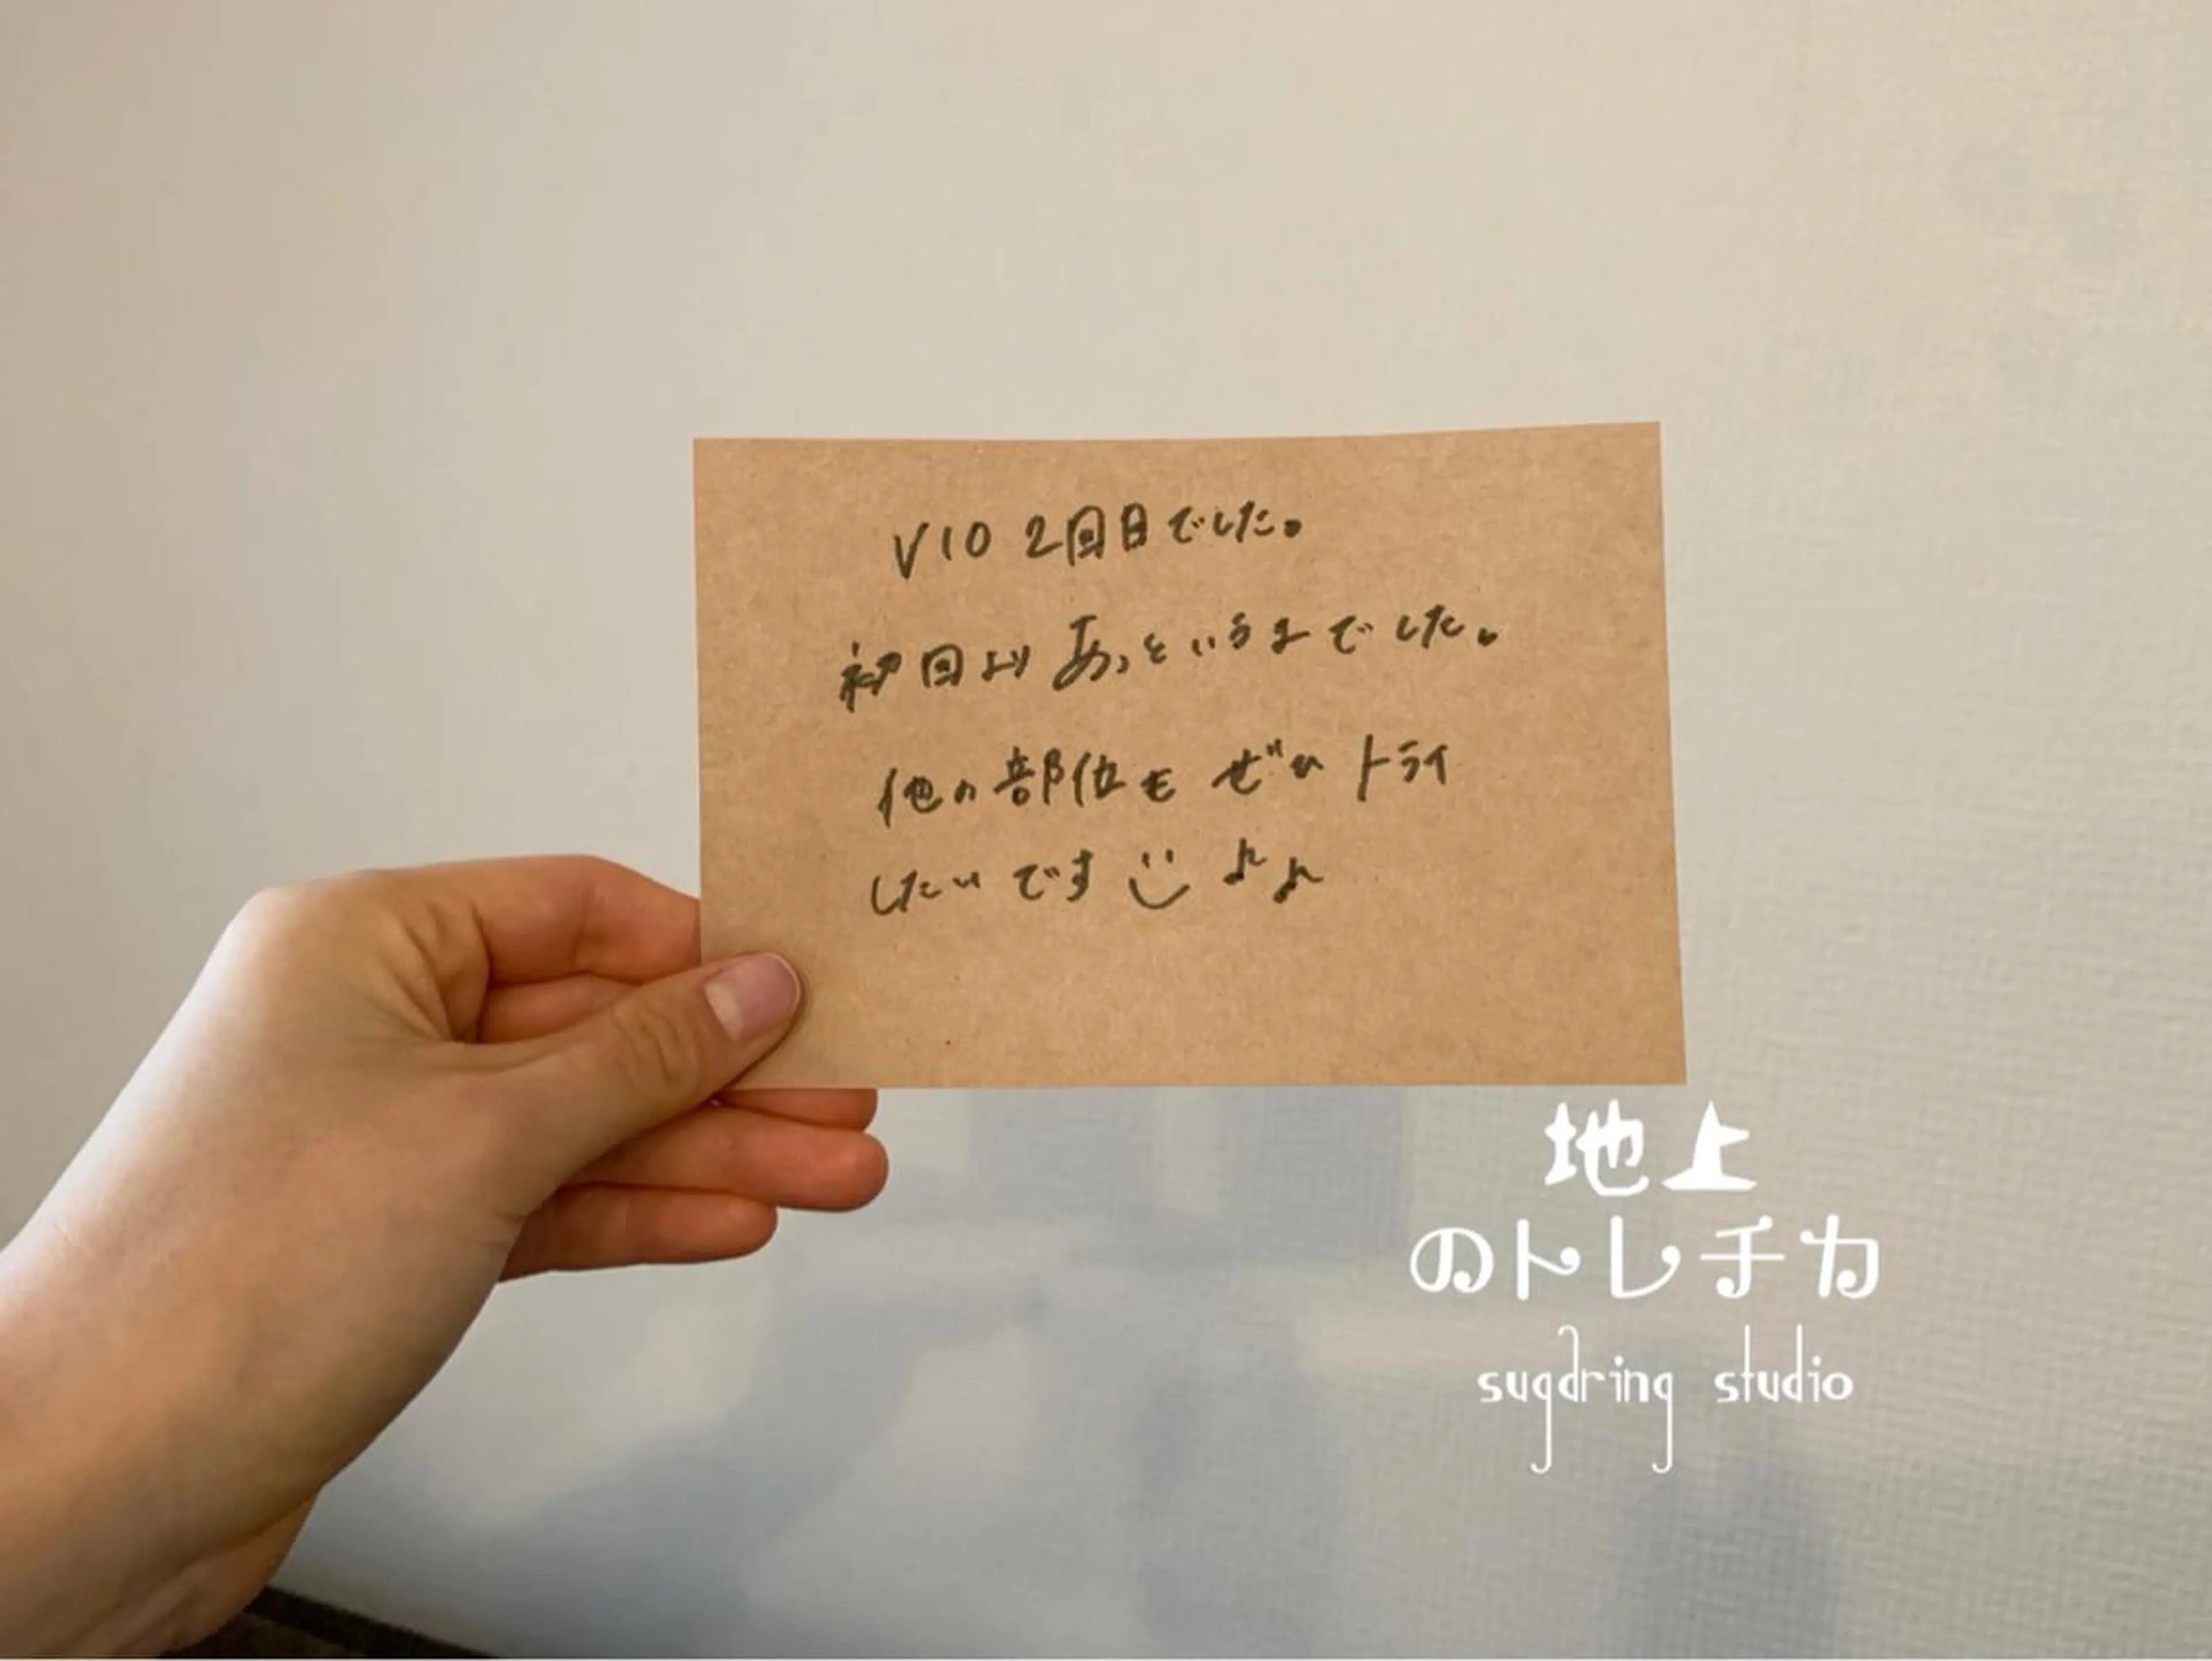 VIO 2回目でした。
初回よりあっというまでした。
他の部位も ぜひ トライ
したいです ♪♪
地上
のトレチカ
sugdring studio